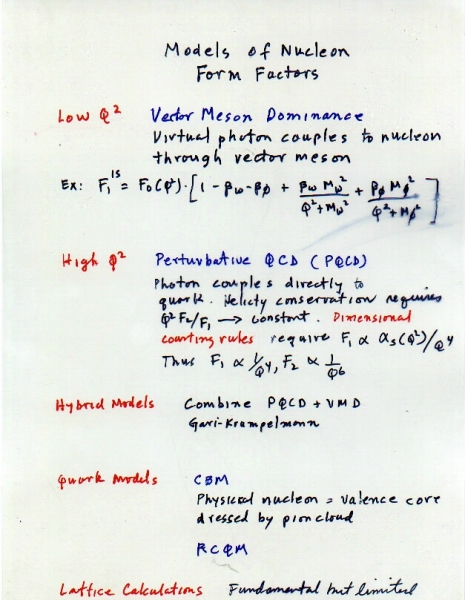 Models of Nucleon
Form Factors
Low Q² Vector Meson Dominance
Virtual photon couples to nucleon
through vector meson
Ex: F₁^IS = F₀(Q²)·[1 - βω - βφ + βω Mω²/(Q²+Mω²) + βφ Mφ²/(Q²+Mφ²)]
High Q² Perturbative QCD (PQCD)
Photon couples directly to
quark. Helicty conservation requires
Q² F₂/F₁ → constant. Dimensional
counting rules require F₁ ∝ αs(Q²)/Q⁴
Thus F₁ ∝ 1/Q⁴, F₂ ∝ 1/Q⁶
Hybrid Models Combine PQCD + VMD
Gari-Krumpelmann
Quark Models CBM
Physical nucleon = valence core
dressed by pion cloud
RCQM
Lattice Calculations Fundamental but limited